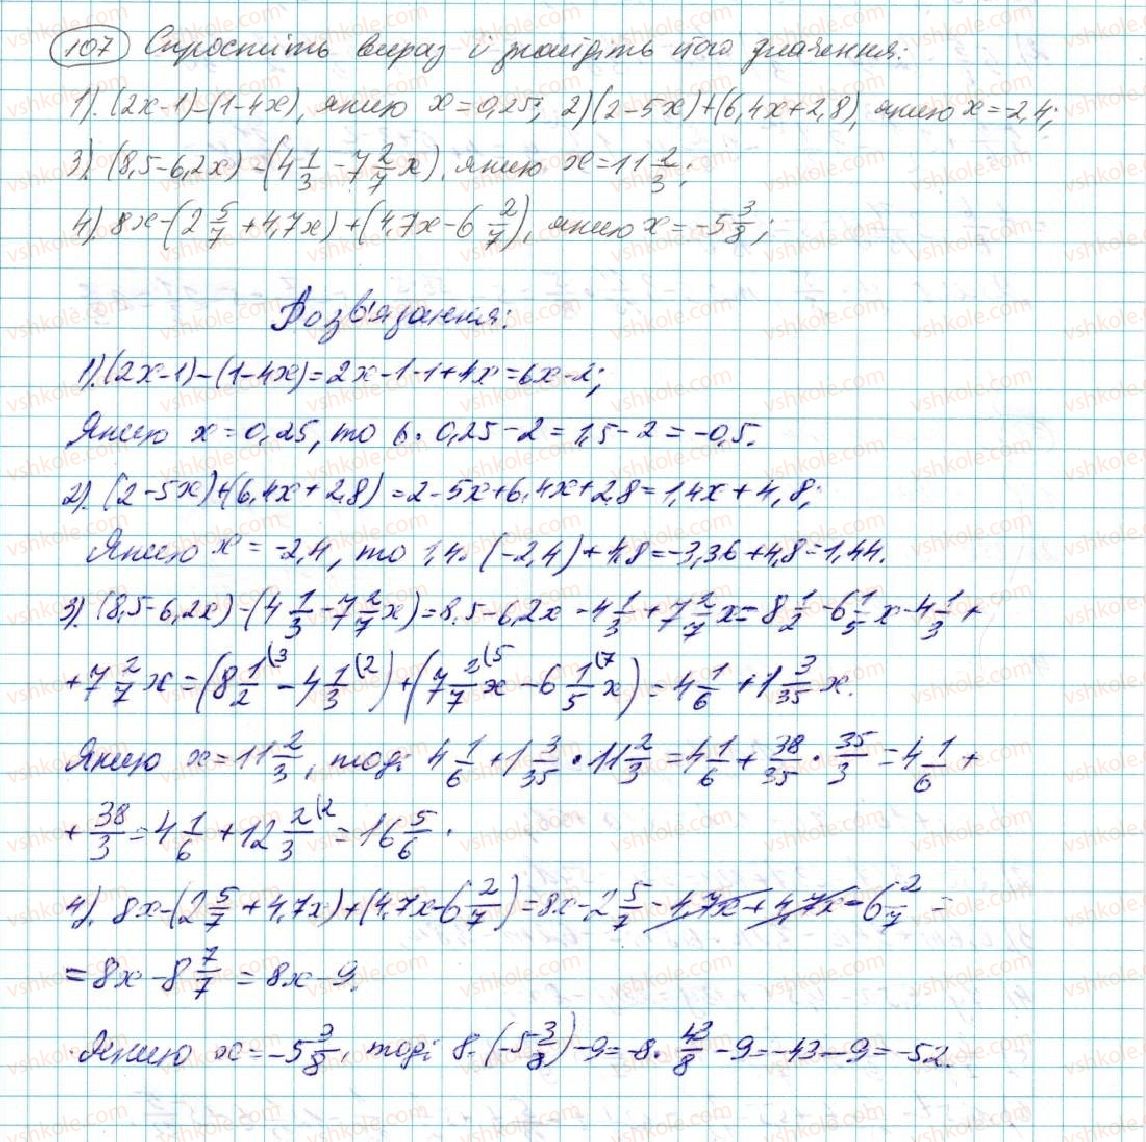 107 Спростіть вираз і знайдіть його значення:
1). (2x-1)-(1-4x), якщо x=0,25; 2)(2-5x)+(6,4x+2,8), якщо x=-2,4;
3). (8,5-6,2x)-(4 1/3 -7 2/7 x), якщо x=11 2/3;
4). 8x-(2 5/7 +4,7x)+(4,7x-6 2/7), якщо x=-5 3/8;
Розв'язання:
1).(2x-1)-(1-4x)=2x-1-1+4x=6x-2;
Якщо x=0,25, то 6·0,25-2=1,5-2=-0,5.
2). (2-5x)+(6,4x+2,8)=2-5x+6,4x+2,8=1,4x+4,8;
Якщо x=-2,4, то 1,4·(-2,4)+4,8=-3,36+4,8=1,44.
3) (8,5-6,2x)-(4 1/3 -7 2/7 x)=8,5-6,2x-4 1/3 +7 2/7 x=8 1/2 -6 1/5 x-4 1/3 +
+7 2/7 x=(8 1/2 (3 -4 1/3 (2)+(7 2/7 (5 x-6 1/5 (7 x)=4 1/6 +1 3/35 x.
Якщо x=11 2/3, тоді 4 1/6 +1 3/35 · 11 2/3 =4 1/6 + 38/35 · 35/3 =4 1/6 +
+ 38/3 =4 1/6 +12 2/3 (2 =16 5/6.
4). 8x-(2 5/7 +4,7x)+(4,7x-6 2/7)=8x-2 5/7 -4,7x+4,7x-6 2/7 =
=8x-8 7/7 =8x-9.
Якщо x=-5 3/8, тоді 8·(-5 3/8)-9=-8· 43/8 -9=-43-9=-52.